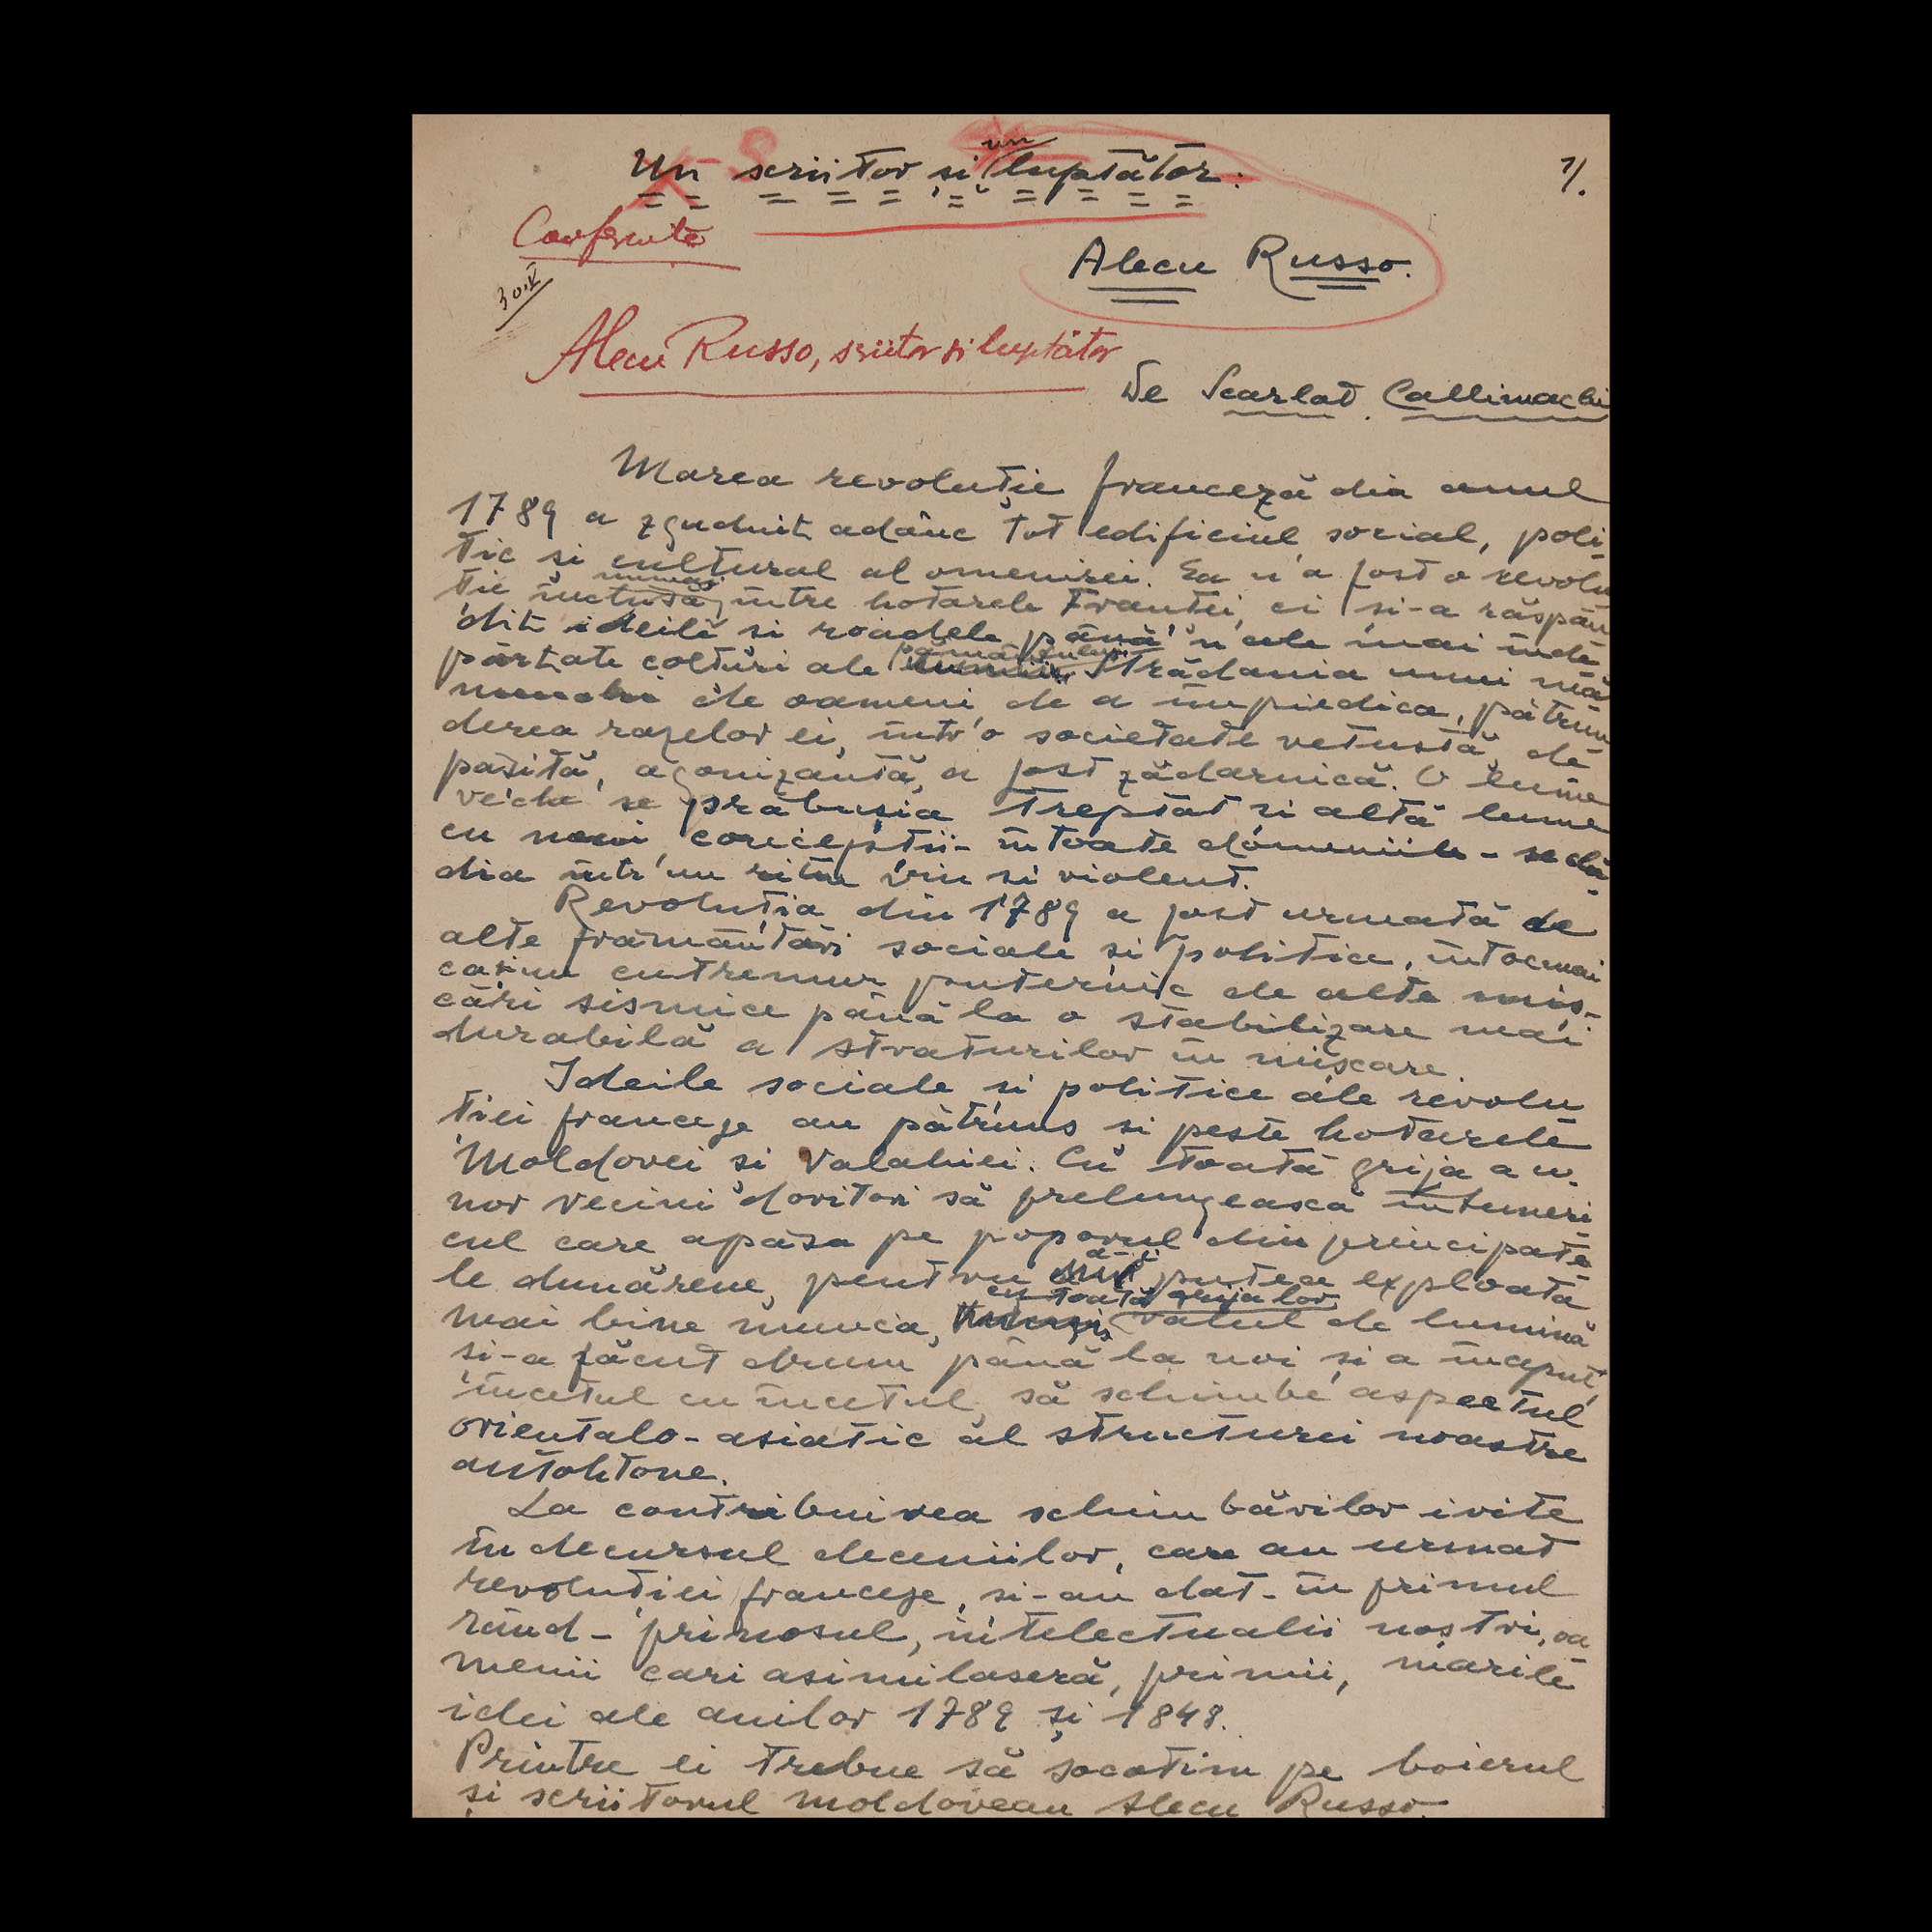 Un scriitor și un luptător:
1/.
Conferințe
30.V
Alecu Russo.
Alecu Russo, scriitor și luptător
De Scarlat Callimachi
Marea revoluție franceză din anul
1789 a zguduit adânc tot edificiul social, poli-
tic și cultural al omenirei. Ea n'a fost o revolu
ție închisă numai între hotarele Franței, ci și-a răspân
dit ideile și roadele până'n cele mai înde
părtate colțuri ale pământului. Strădania unui mă
nunchi de oameni de a împiedica, pătrun
derea razelor ei, într'o societate vetustă, de
pășită, agonizantă, a fost zădarnică. O lume
veche se prăbușia treptat și altă lume
cu noui concepții - în toate domeniile - se clă-
dia într'un ritm viu și violent.
Revoluția din 1789 a fost urmată de
alte frământări sociale și politice, întocmai
ca un cutremur puternic de alte miș-
cări sismice până la o stabilizare mai
durabilă a straturilor în mișcare.
Ideile sociale și politice ale revolu
ției franceze au pătruns și peste hotarele
Moldovei și Valahiei. Cu toată grija a u-
nor vecini doritori să prelungească întuneri
cul care apăsa pe poporul din principate
le dunărene, pentru a-i putea exploata
mai bine munca, cu toată grija lor, valul de lumină
și-a făcut drum până la noi și a început,
încetul cu încetul, să schimbe aspectul
orientalo-asiatic al structurei noastre
autohtone.
La contribuirea schimbărilor ivite
în decursul deceniilor, care au urmat
revoluției franceze, și-au dat - în primul
rând - prinosul, intelectualii noștri, oa
menii cari asimilaseră, primii, marile
idei ale anilor 1789 și 1848.
Printre ei trebue să socotim pe boierul
și scriitorul moldovean Alecu Russo.